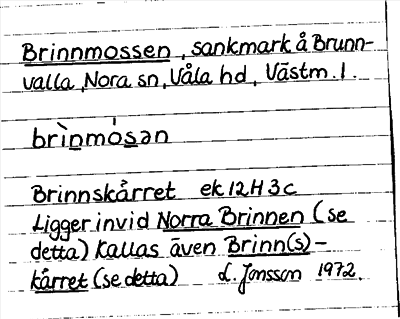 Brinnmossen, sankmark å Brunn-
valla, Nora sn, Våla hd, Västm. l.
brìnmósən
Brinnskårret ek 12H 3c
Ligger invid Norra Brinnen (se
detta) Kallas även Brinn(s)-
kårret (se detta) L. Jonsson 1972.